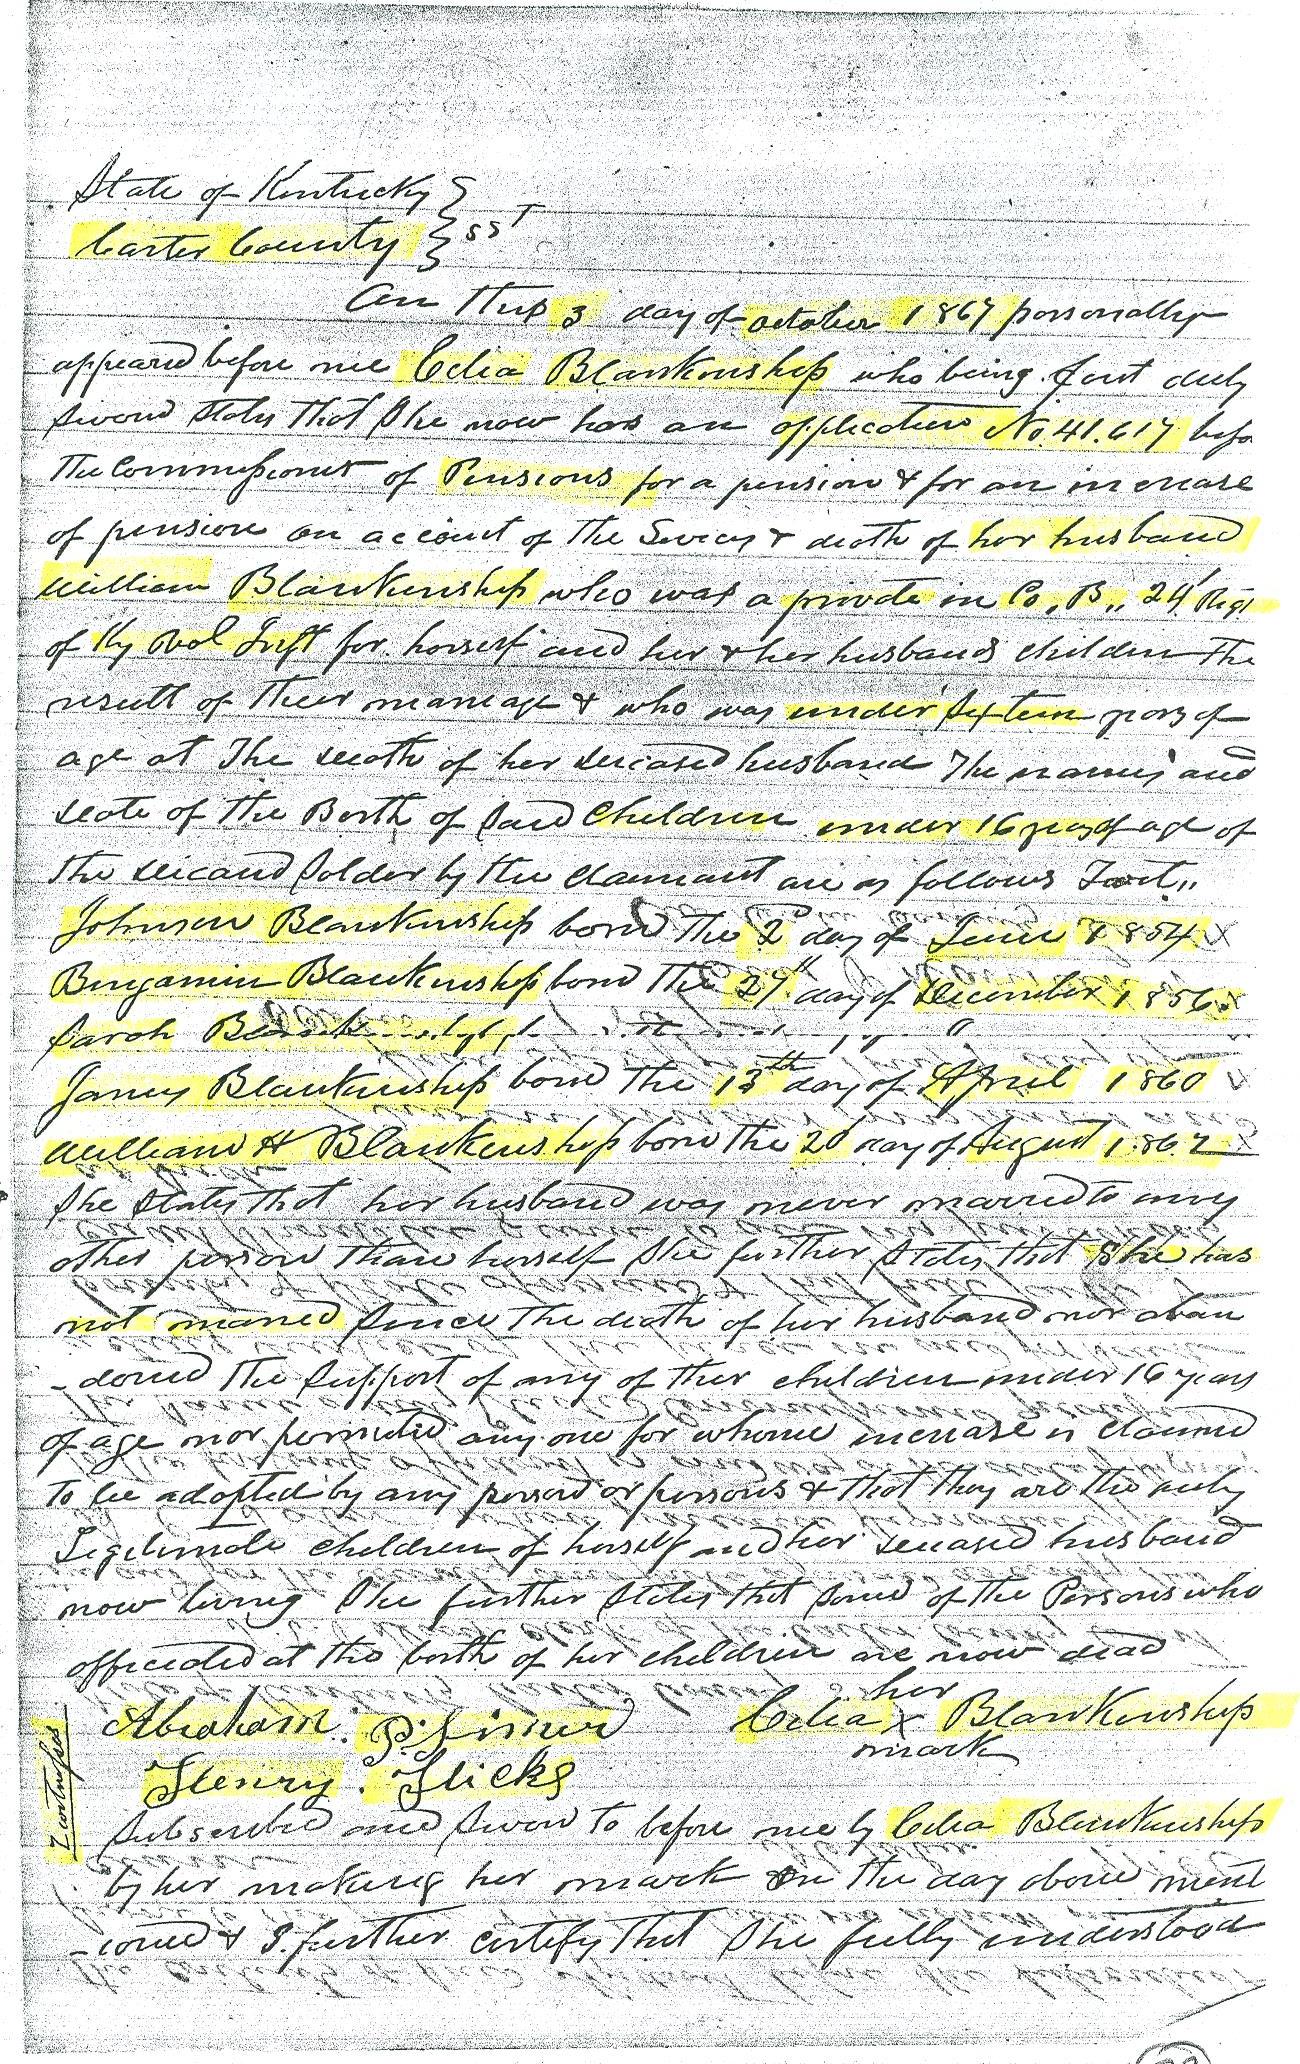 State of Kentucky }
Carter County } SST
On this 3 day of october 1867 personally
appeared before me Celia Blankenship who being first duly
Sword States that She now has an application No. 41.617 befo
The Commissioner of Pensions for a pension & for an increase
of pension on account of the Servics & death of her husband
William Blankenship who was a private in Co, B,, 24 Regt
of Ky Vol Inft for herself and her & her husbands children the
result of their marriage & who was under Sixteen years of
age at The death of her deceased husband The names and
date of the Birth of Said Children under 16 years of age of
the deceased Solder by the claimant are as follows Towit,,
Johnson Blankenship born the 2 day of June 1854
Benjamin Blankenship born the 27th day of December 1856
Sarah
James Blankenship born the 13th day of April 1860
William H Blankenship born the 20 day of August 1862
She States that her husband was never married to any
other person than herself She further States that She has
not married Since the death of her husband nor aban
-doned the Support of any of ther children under 16 years
of age nor permitted any one for whome increase is claimed
to be adopted by any person or persons & that they are the only
Legitimate children of herself and her deceased husband
now living She further States that Some of the Persons who
officiated at the birth of her children are now dead
her
Abraham Celia x Blankenship
mark
Henry Hicks
2 witnesses
Subscribed and Sworn to before me by Celia Blankenship
by her making her mark on the day above ment
-ioned & I further certify that She fully understood